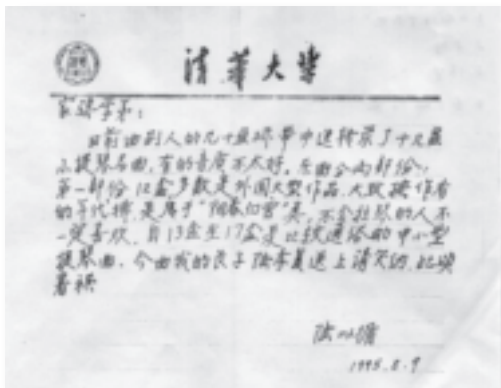 清华大学
学弟：
日前由别人的几十盘磁带中选转录了十九盘
小提琴名曲，有的音质不太好。名曲分两部份，
第一部份12盒多数是外国大型作品，大致按作者
的年代排，是属于“阳春白雪”类，不会拉琴的人不
一定喜欢，自13盒至17盒是比较通俗的中小型
提琴曲。今由我的长子陆李送上请笑纳，此颂
春祺
1995.2.9